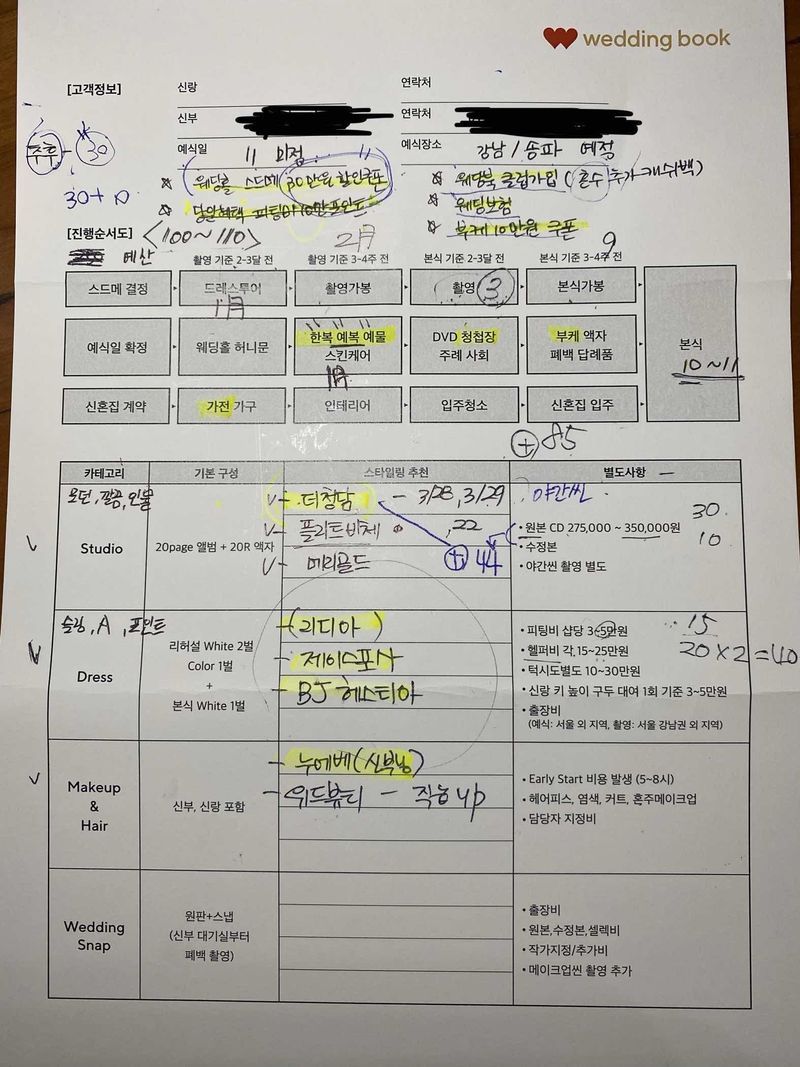 wedding book
[고객정보] 신랑 연락처
신부 연락처
추후 - 30 예식일 11 미정 예식장소 강남 / 송파 예정
30+10 ☆ 웨딩홀 스드메 30만원 할인쿠폰 ☆ 웨딩북 클럽가입 (혼수 추가 캐쉬백)
☆ 당일혜택 피팅비 10만 포인트 ☆ 웨딩보험
☆ 부케 10만원 쿠폰
[진행순서도] <100~110> 2月 9
예산 촬영 기준 2-3달 전 촬영 기준 3-4주 전 본식 기준 2-3달 전 본식 기준 3-4주 전
스드메 결정 드레스투어 촬영가봉 촬영 3 본식가봉
1月
예식일 확정 웨딩홀 허니문 한복 예복 예물 DVD 청첩장 부케 액자 본식
스킨케어 주례 사회 폐백 답례품 10~11
1月
신혼집 계약 가전 가구 인테리어 입주청소 신혼집 입주
+85
카테고리 기본 구성 스타일링 추천 별도사항
모던, 깔끔, 인물
Studio
20page 앨범 + 20R 액자
v - 더청담 - 3/28, 3/29
v - 플리트비체 , 22
v - 메리골드 + 44
야간씬
• 원본 CD 275,000 ~ 350,000원 30
• 수정본 10
• 야간씬 촬영 별도
슬림, A, 포인트
Dress
리허설 White 2벌
Color 1벌
+
본식 White 1벌
- (리디아)
- 제이스포사
- BJ 헤스티아
• 피팅비 샵당 3~5만원 15
• 헬퍼비 각,15~25만원 20 X 2 = 40
• 턱시도별도 10~30만원
• 신랑 키 높이 구두 대여 1회 기준 3~5만원
• 출장비
(예식: 서울 외 지역, 촬영: 서울 강남권 외 지역)
Makeup
&
Hair
신부, 신랑 포함
- 누에베(신부님)
- 위드뷰티 - 직능 up
• Early Start 비용 발생 (5~8시)
• 헤어피스, 염색, 커트, 혼주메이크업
• 담당자 지정비
Wedding
Snap
원판+스냅
(신부 대기실부터
폐백 촬영)
• 출장비
• 원본,수정본,셀렉비
• 작가지정/추가비
• 메이크업씬 촬영 추가